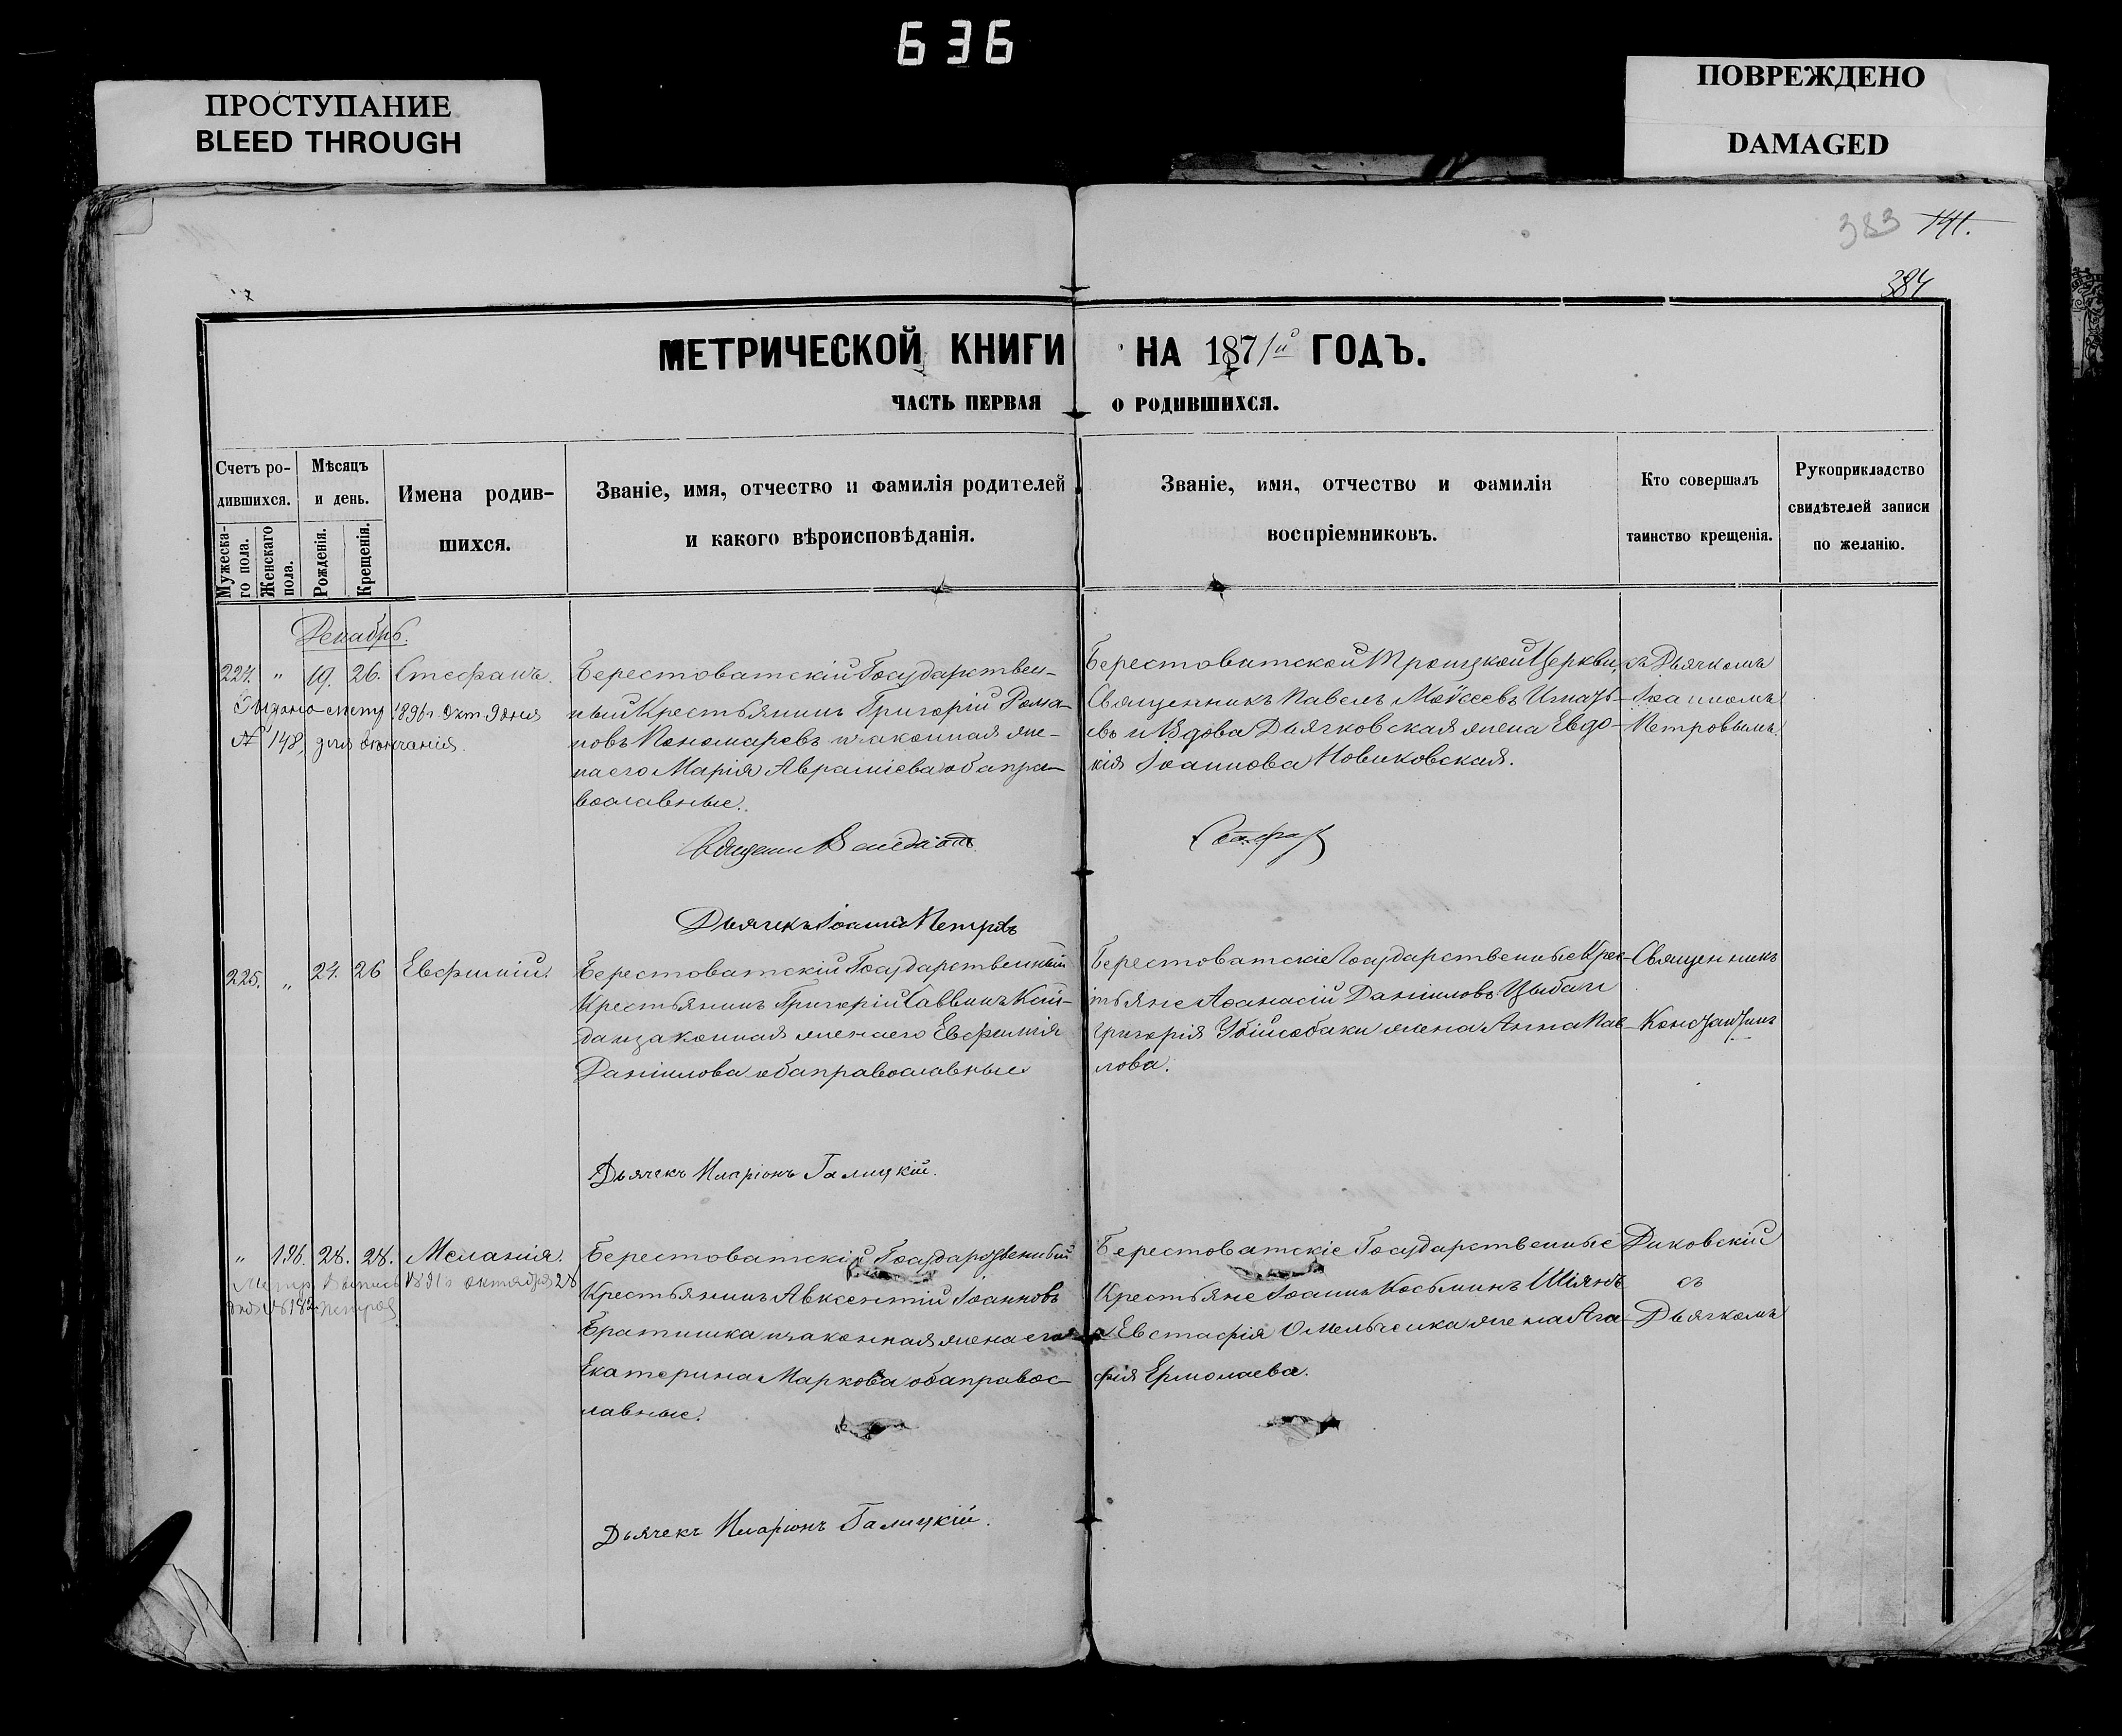 636
ПРОСТУПАНИЕ
BLEED THROUGH
ПОВРЕЖДЕНО
DAMAGED
383 141.
384
МЕТРИЧЕСКОЙ КНИГИ НА 1871й ГОДЪ.
ЧАСТЬ ПЕРВАЯ О РОДИВШИХСЯ.
Счетъ ро-
дившихся.
Мужеска-
го пола.
Женскаго
пола.
Мѣсяцъ
и день.
Рожденія.
Крещенія.
Имена родив-
шихся.
Званіе, имя, отчество и фамилія родителей
и какого вѣроисповѣданія.
Званіе, имя, отчество и фамилія
воспріемниковъ.
Кто совершалъ
таинство крещенія.
Рукоприкладство
свидѣтелей записи
по желанію.
Декабрь.
224. " 19. 26. Стефанъ.
метр 1896 г. Окт. 9 дня
№ 148, для
Берестоватскій Государствен-
ный Крестьянинъ Григорій Рома-
новъ Пономаревъ и законная же-
на его Марія Аврамiева оба пра-
вославные.
Дьячекъ Іоаннъ Петровъ
Берестоватской Троицкой Церкви,
Священникъ Павелъ Моѵсеевъ Игнать-
евъ и Вдова Дьячковская жена Евдо-
кія Іоаннова Новиковская.
съ Дьячкомъ
Іоанномъ
Петровымъ.
225. " 24. 26 Евфимій.
Берестоватскій Государственный
Крестьянинъ Григорій Саввинъ Кай-
дан законная жена его Евфимія
Даніилова оба православные
Дьячекъ Иларіонъ Галицкій.
Берестоватскіе Государственные Крес-
тьяне Аѳанасій Даніиловъ Цыбан
Григорія Убійсобаки жена Анна Пав-
лова.
Священникъ
Константинъ
" 196. 28. 28. Меланія.
октября 28
Берестоватскій Государственный
Крестьянинъ Авксентій Іоанновъ
Братишка и законная жена его
Екатерина Маркова оба правос-
лавные.
Дьячекъ Иларіонъ Галицкій.
Берестоватскіе Государственные
Крестьяне Іоаннъ Косьминъ Шіянъ
и Евстафія Омельченка жена Ага-
фія Ермолаева.
Диковскій
съ
Дьячкомъ